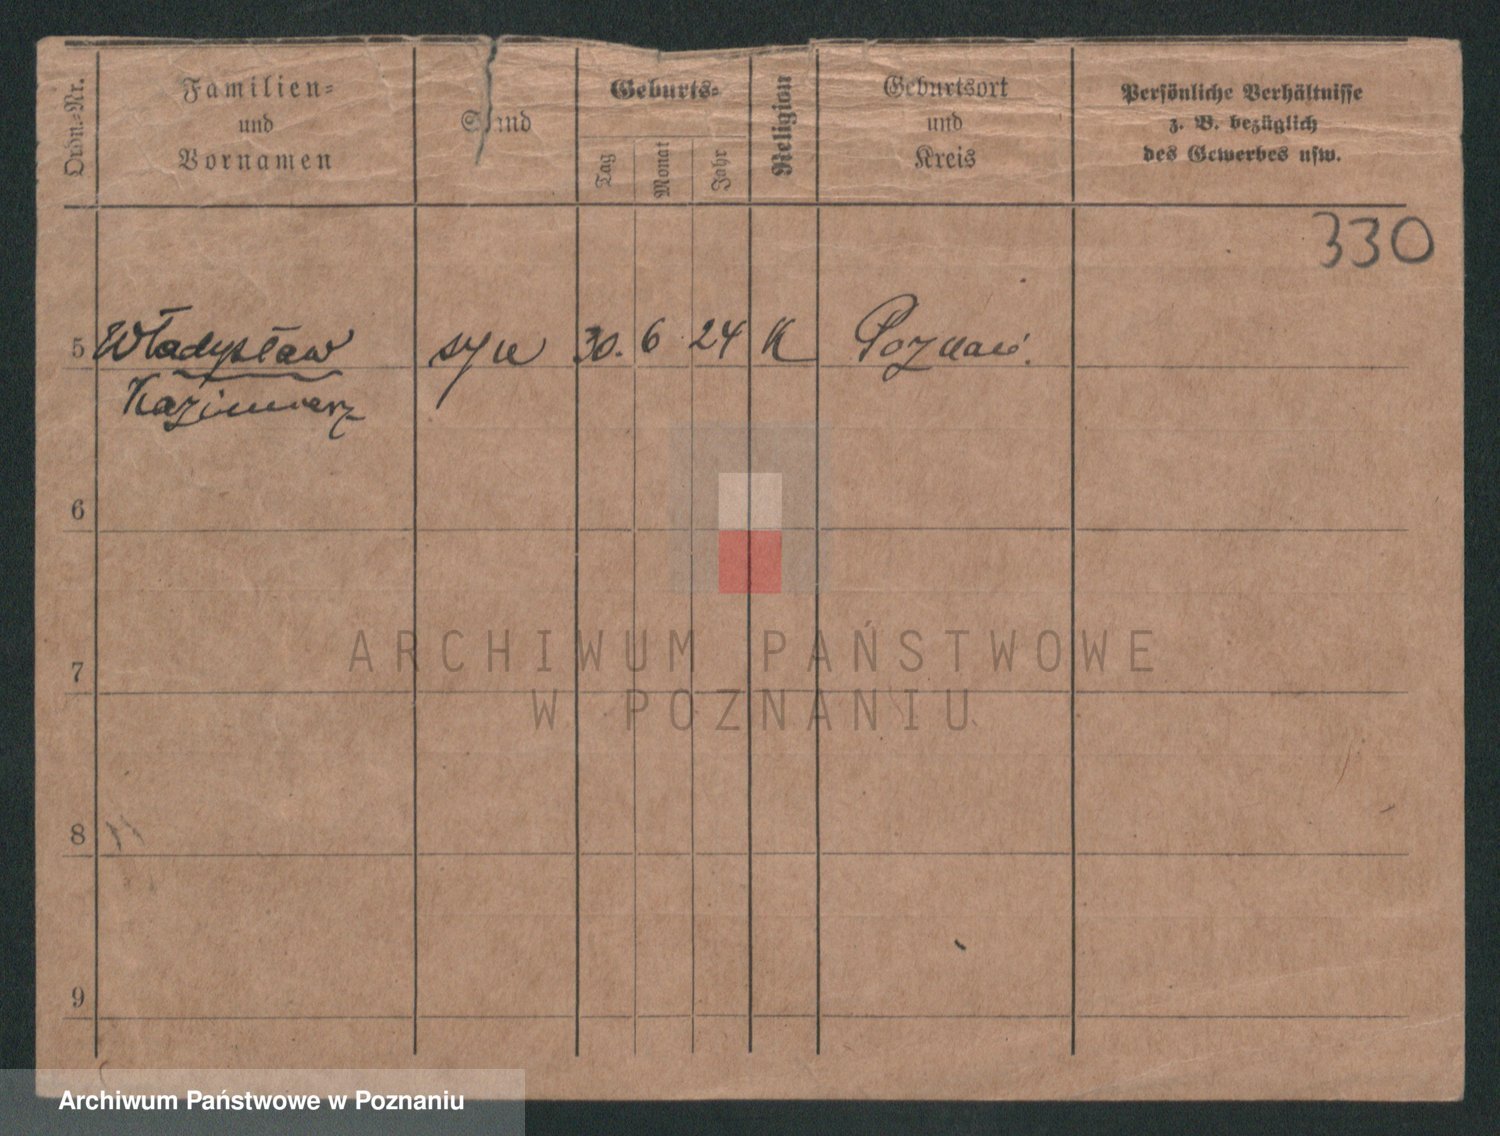 Ordn.-Nr.
Familien-
und
Vornamen
Stand
Geburts-
Tag
Monat
Jahr
Religion
Geburtsort
und
Kreis
Persönliche Verhältnisse
z. B. bezüglich
des Gewerbes usw.
330
5 Władysław syn 30. 6 24 K Poznań.
Kazimierz
6
7
8
9
ARCHIWUM PAŃSTWOWE
W POZNANIU
Archiwum Państwowe w Poznaniu